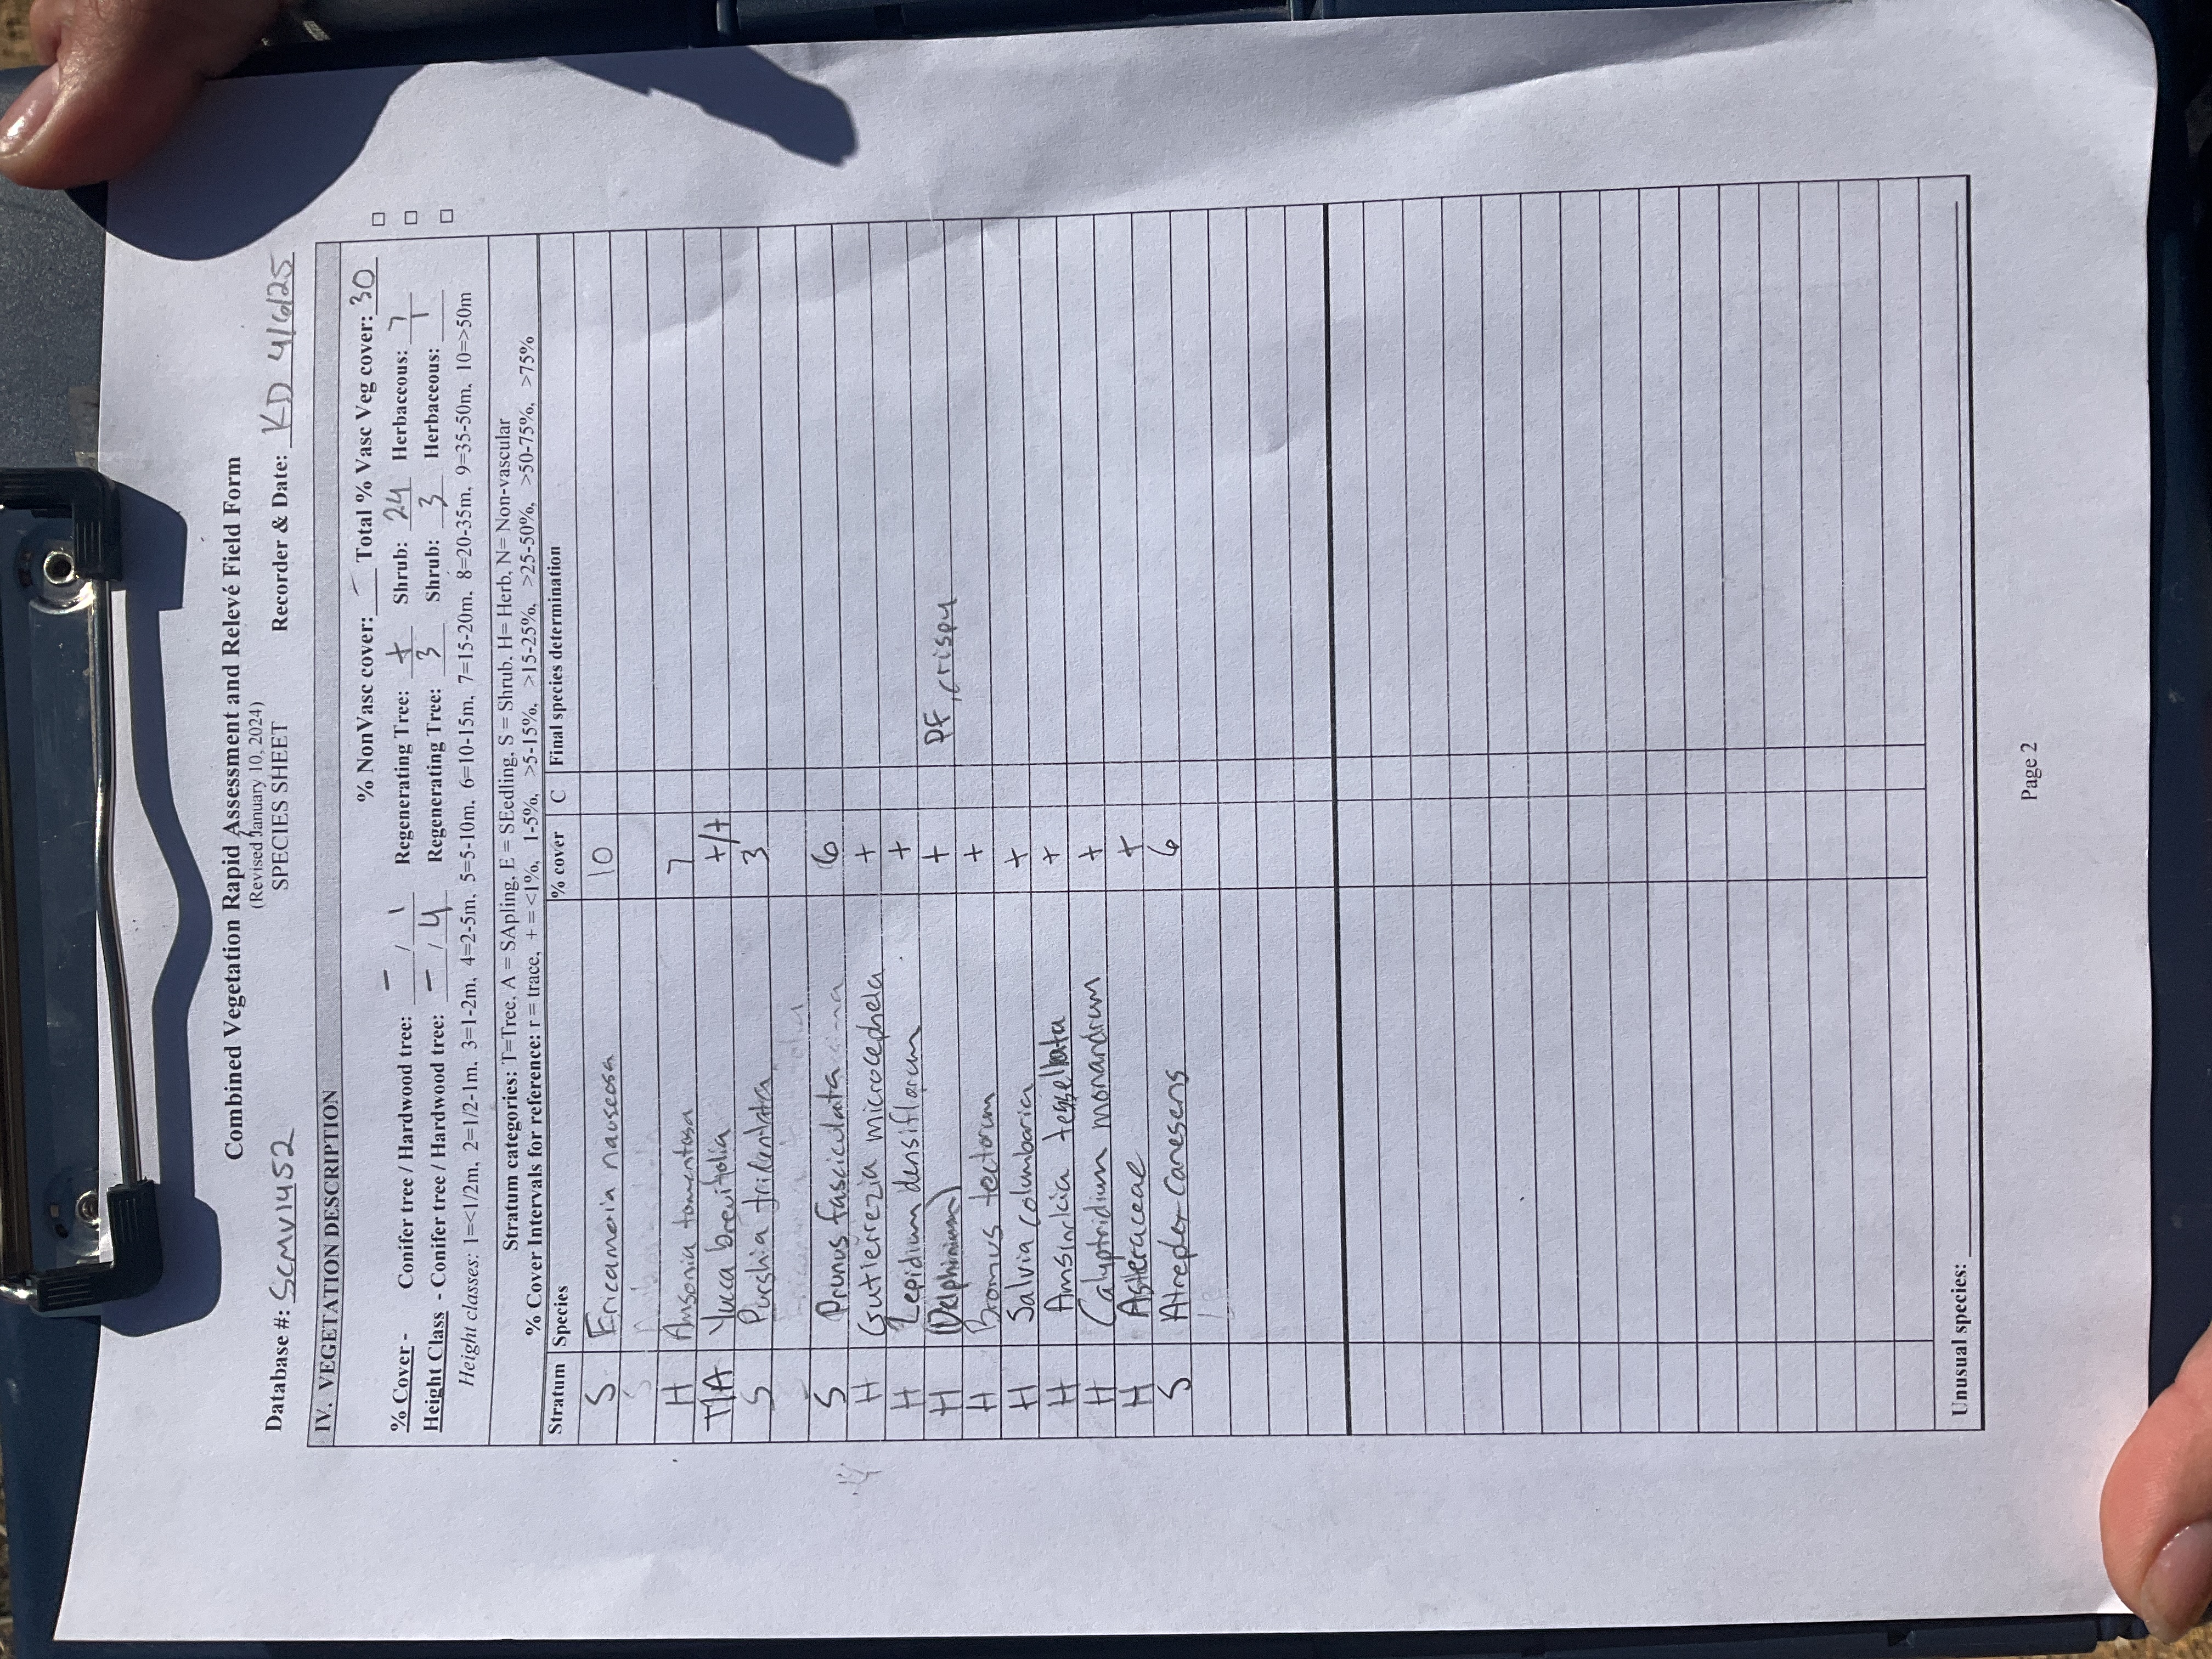 Combined Vegetation Rapid Assessment and Relevé Field Form
(Revised January 10, 2024)
SPECIES SHEET
Database #: SCMV1452 Recorder & Date: KD 4/6/25
IV. VEGETATION DESCRIPTION
% NonVasc cover: - Total % Vasc Veg cover: 30
% Cover - Conifer tree / Hardwood tree: - / 1 Regenerating Tree: + Shrub: 24 Herbaceous: 7
Height Class - Conifer tree / Hardwood tree: - / 4 Regenerating Tree: 3 Shrub: 3 Herbaceous: 1
Height classes: 1=<1/2m, 2=1/2-1m, 3=1-2m, 4=2-5m, 5=5-10m, 6=10-15m, 7=15-20m, 8=20-35m, 9=35-50m, 10=>50m
Stratum categories: T=Tree, A = SApling, E = SEedling, S = Shrub, H= Herb, N= Non-vascular
% Cover Intervals for reference: r = trace, + = <1%, 1-5%, >5-15%, >15-25%, >25-50%, >50-75%, >75%
Stratum Species % cover C Final species determination
S Ericameria nauseosa 10
H Amsonia tomentosa 7
T/A Yucca brevifolia +/+
S Purshia tridentata 3
S Prunus fasciculata 6
H Gutierrezia microcephela +
H Lepidium densiflorum +
H (Delphinium) + DF, crispy
H Bromus tectorum +
H Salvia Columbaria +
H Amsinckia tessellata +
H Calyptridium monandrum +
H Asteraceae +
S Atreplex Canesens 6
Unusual species:
Page 2